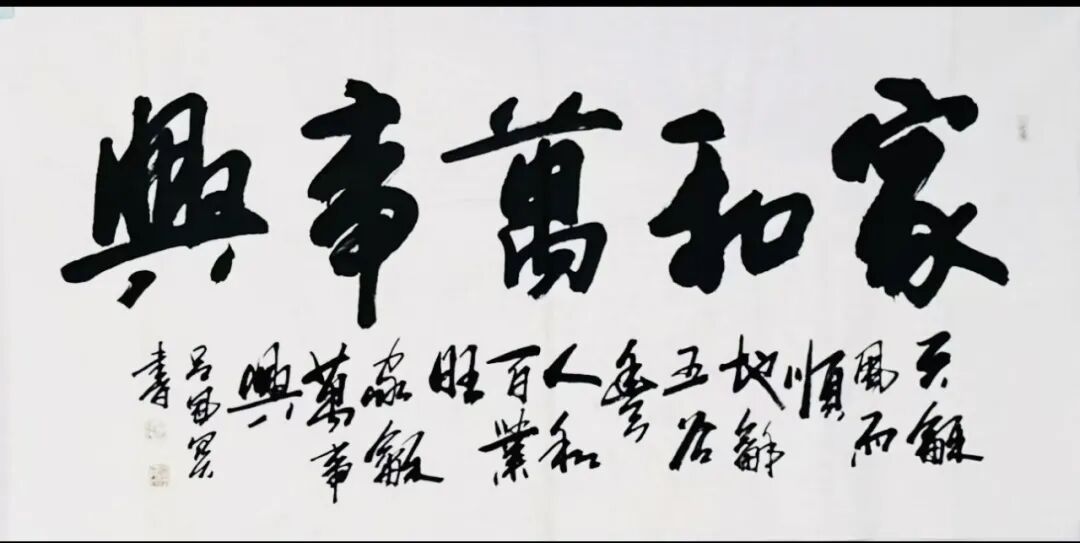 家和萬事興
天龢
風雨
順
地龢
五谷
豐
人和
百業
旺
家龢
萬事
興
吕
書